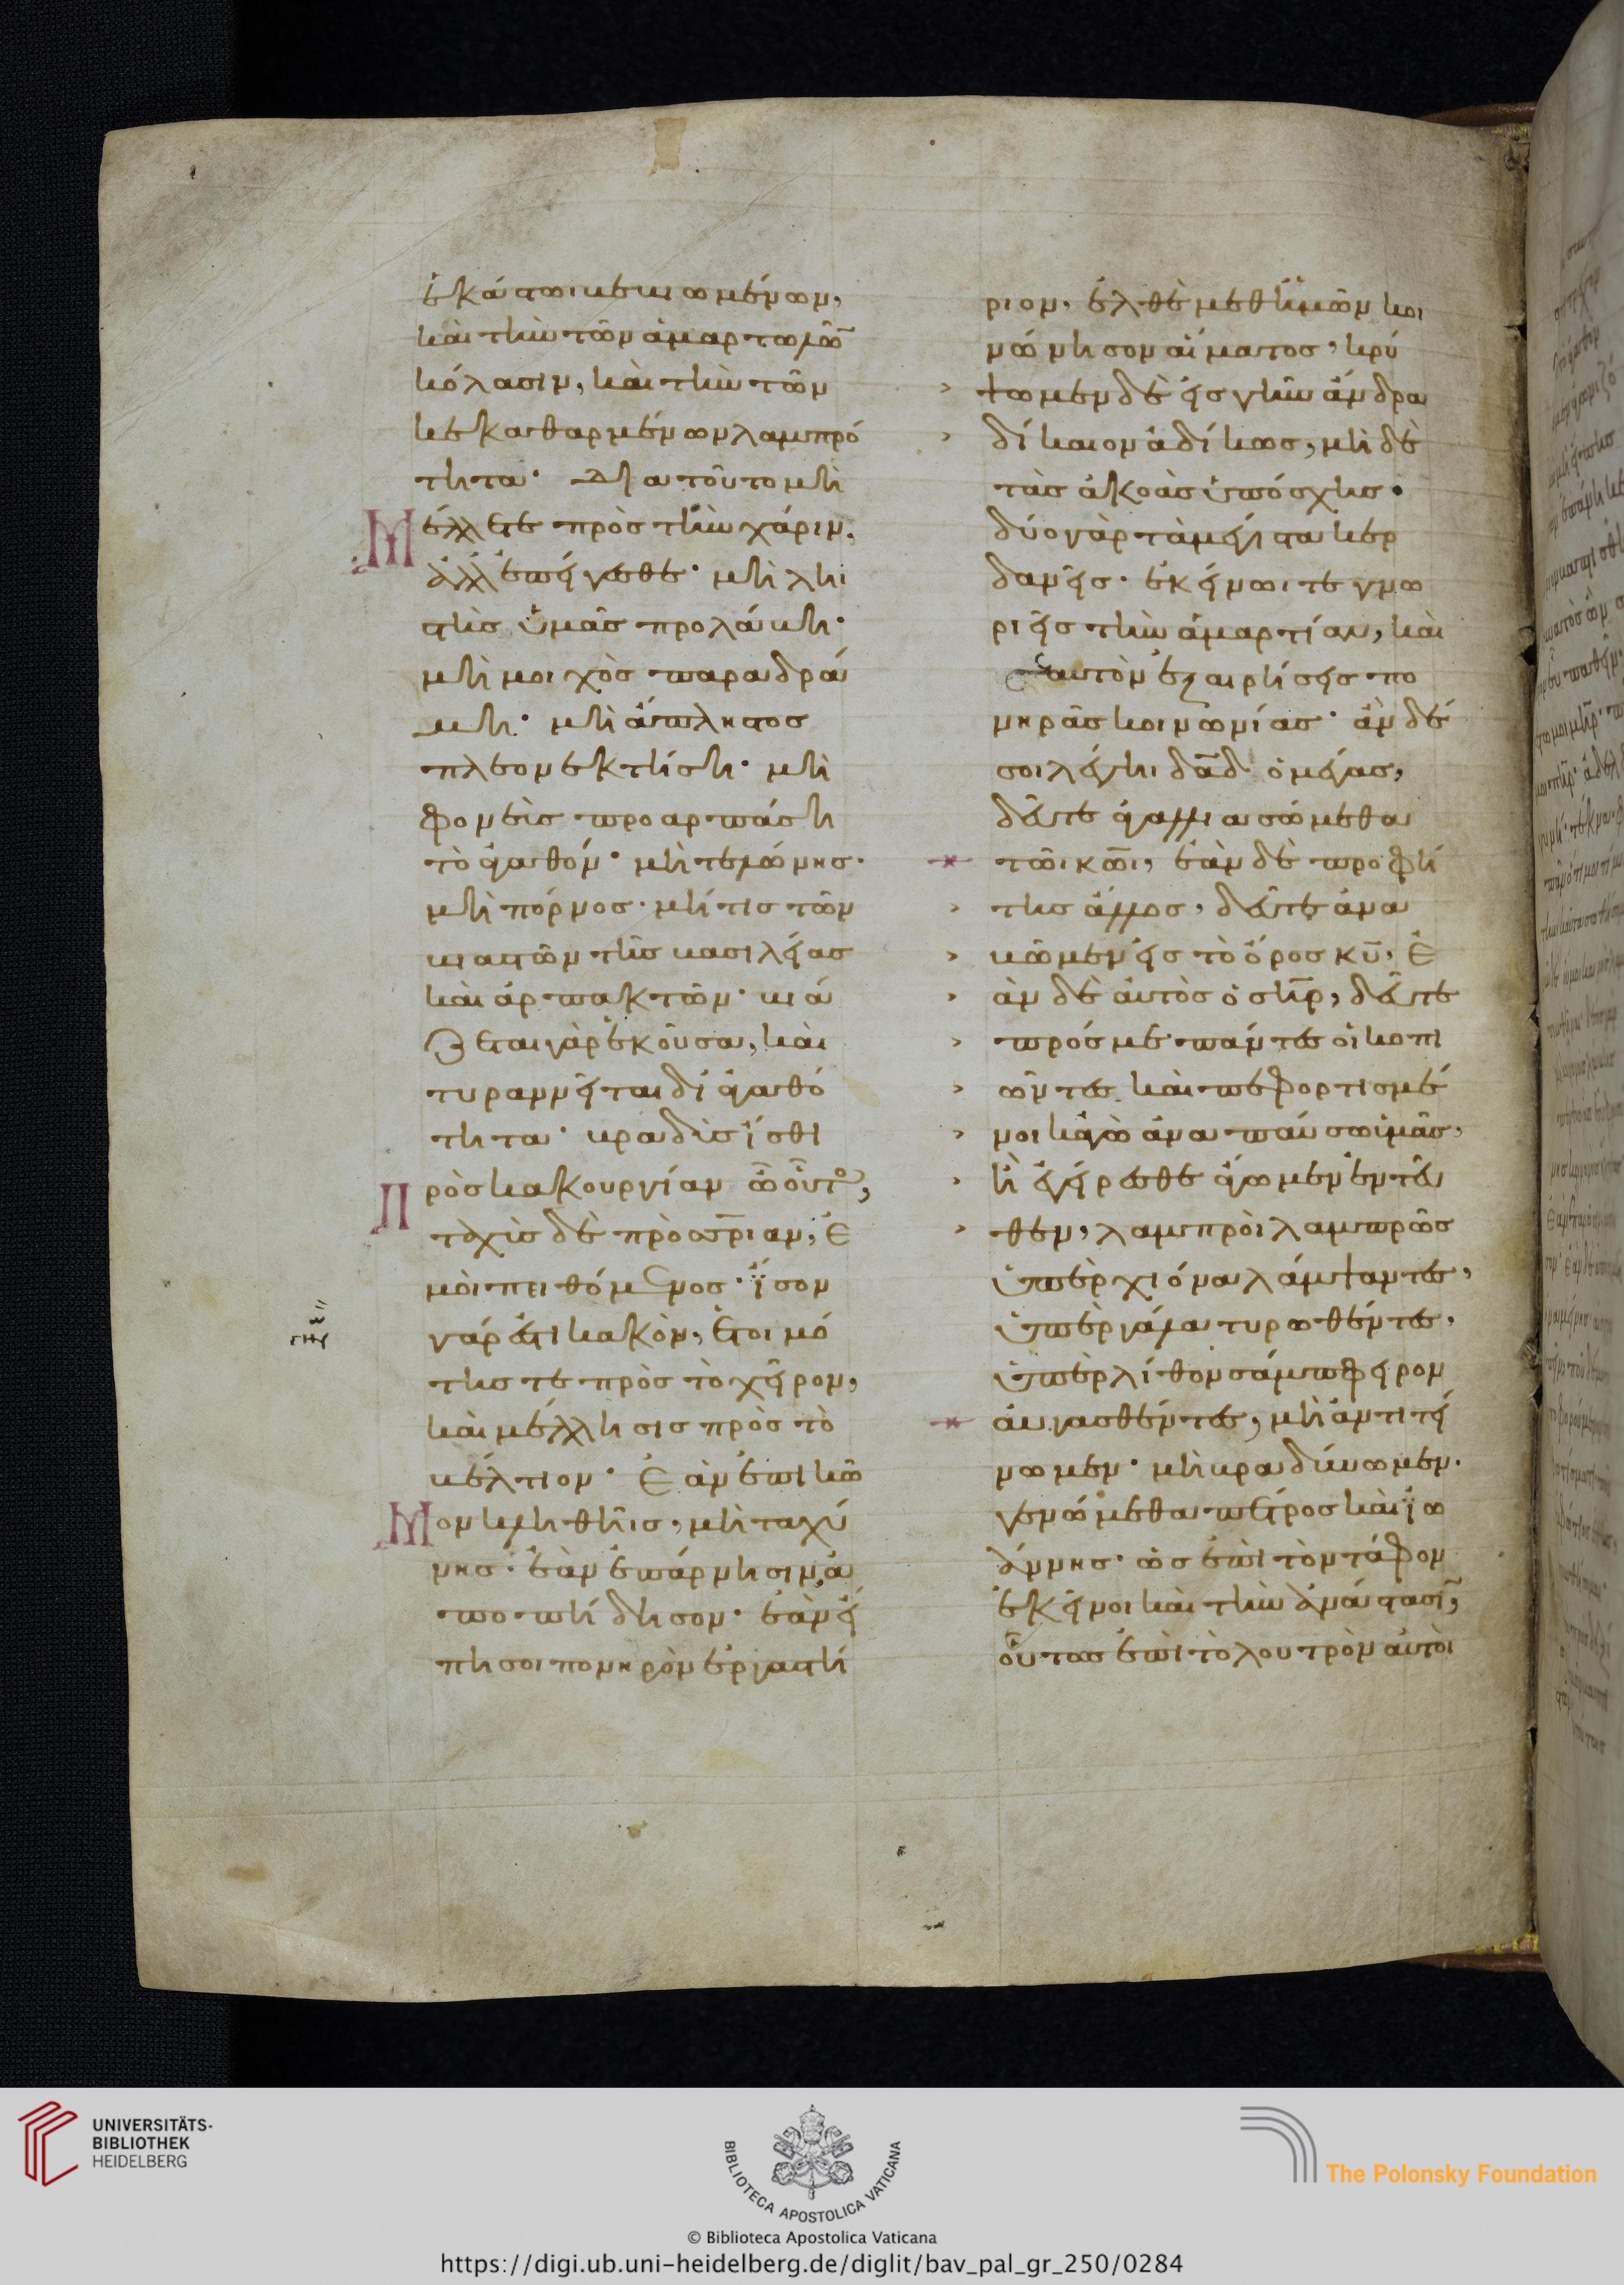 ἑκάστωι βεβιωμένων,
καὶ τὴν τῶν ἁμαρτωλῶ̅
κόλασιν, καὶ τὴν τῶν
κεκαθαρμένων λαμπρό
τητα· Διατοῦτο μὴ
Μέλλετε πρὸς τὴν χάριν.
ἀλλ ἐπείγεσθε· μὴ λῃ
στὴς ὑμᾶς προλάβη·
μὴ μοιχὸς παραδρά
μη· μὴ ἄπληστος
πλεονεκτήση· μὴ
φονεὺς προαρπάση
τὸ ἀγαθόν· μὴ τελώνης·
μὴ πόρνος· μή τις τῶν
βιαστῶν τῆς βασιλείας
καὶ ἁρπακτῶν· βιά
ζεται γὰρ ἑκοῦσα, καὶ
τυραννεῖται δι ἀγαθό
τητα· βραδὺς ἴσθι
Πρὸς κακουργίαν ὦ οὗτο,
ταχὺς δὲ πρὸς σρ̅ιαν, ἐ
μοὶ πειθόμενος· ἴσον
γάρ ἐστι κακὸν, ἑτοιμό
της τε πρὸς τὸ χεῖρον,
καὶ μέλλησις πρὸς τὸ
βέλτιον· Ἐὰν ἐπὶ κῶ
Μον κληθῆις, μὴ ταχύ
νης· ἐὰν ἐπάρνησιν, ἀ
ποπήδησον· ἐὰν εἴ
πη σοι πονηρὸν ἐργαστή
ριον, ἐλθὲ μεθ ἡμῶν κοι
νώνησον αἵματος, κρύ
ψωμεν δὲ εἰς γῆν ἄνδρα
δίκαιον ἀδίκως, μὴ δὲ
τὰς ἀκοὰς ὑπόσχης·
δύο γὰρ τὰ μέγιστα κερ
δανεῖς· ἐκείνωι τε γνω
ριεῖς τὴν ἁμαρτίαν, καὶ
σαυτὸν ἐξαιρήσεις πο
νηρᾶς κοινωνίας· ἂν δέ
σοι λέγηι δᾱδ ὁ μέγας,
δεῦτε ἀγαλλιασώμεθα
τῶι κω̅ι, ἐὰν δὲ προφή
της ἄλλος, δεῦτε ἀνα
βῶμεν εἰς τὸ ὄρος κυ̅, ἐ
ὰν δὲ αὐτὸς ὁ σηρ̅, δεῦτε
πρός με πάντες οἱ κοπι
ῶντες καὶ πεφορτισμέ
νοι καγὼ ἀναπαύσω ὑμᾶς·
ἢ ἐγείρεσθε ἄγωμεν ἐντεῦ
θεν, λαμπρὸι λαμπρῶς
ὑπὲρ χιόνα λάμψαντες,
ὑπὲρ γάλα τυρωθέντες,
ὑπὲρ λίθον σάμπφειρον
ἀυγασθέντες, μὴ ἀντιτεί
νωμεν· μὴ βραδύνωμεν.
γενώμεθα πέτρος καὶ ἰω
άννης· ὡς ἐπὶ τὸν τάφον
ἐκεῖνοι καὶ τὴν ἀνάστασι̅,
οὕτως ἐπὶ τὸ λουτρὸν αὐτὸι
UNIVERSITÄTS-
BIBLIOTHEK
HEIDELBERG
BIBLIOTECA APOSTOLICA VATICANA
The Polonsky Foundation
© Biblioteca Apostolica Vaticana
https://digi.ub.uni-heidelberg.de/diglit/bav_pal_gr_250/0284